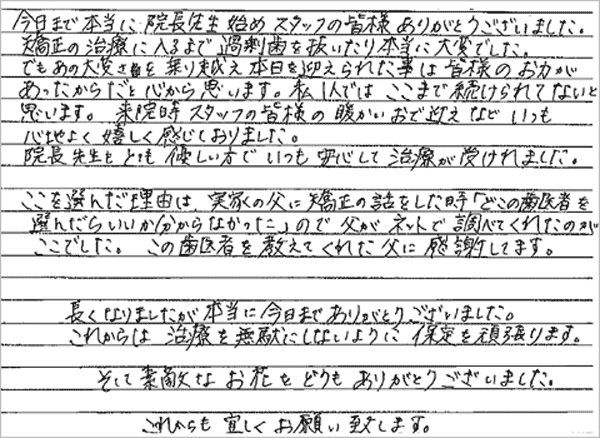 今日まで本当に院長先生始めスタッフの皆様ありがとうございました。
矯正の治療に入るまで過剰歯を抜いたり本当に大変でした。
でもあの大変さを乗り越え本日を迎えられた事は皆様のお力が
あったからだと心から思います。私1人ではここまで続けられてないと
思います。来院時スタッフの皆様の暖かいお出迎えなどいつも
心地よく嬉しく感じておりました。
院長先生もとても優しい方でいつも安心して治療が受けれました。
ここを選んだ理由は、実家の父に矯正の話をした時「どこの歯医者を
選んだらいいか分からなかった」ので父がネットで調べてくれたのが
ここでした。この歯医者を教えてくれた父に感謝してます。
長くなりましたが本当に今日までありがとうございました。
これからは治療を無駄にしないように保定を頑張ります。
そして素敵なお花をどうもありがとうございました。
これからも宜しくお願い致します。